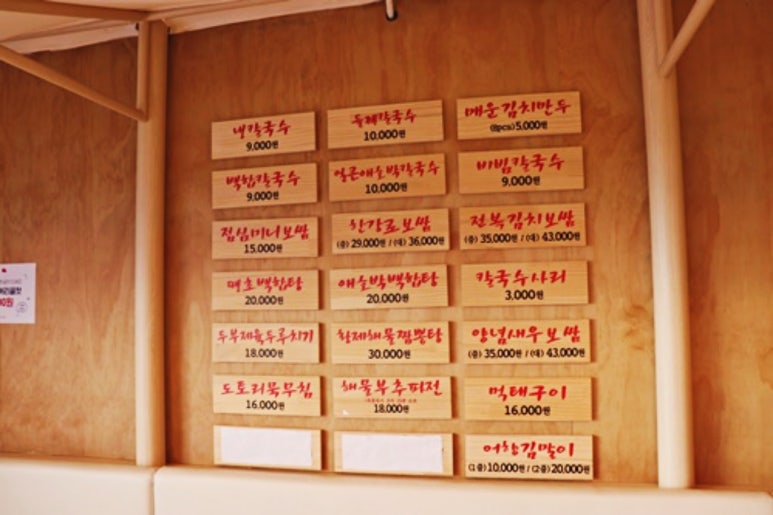 냉칼국수
9,000원
들깨칼국수
10,000원
매운김치만두
(6pcs) 5,000원
백합칼국수
9,000원
얼큰애호박칼국수
10,000원
비빔칼국수
9,000원
점심미니보쌈
15,000원
한강로보쌈
(중) 29,000원 / (대) 36,000원
전복김치보쌈
(중) 35,000원 / (대) 43,000원
땡초백합탕
20,000원
애호박백합탕
20,000원
칼국수사리
3,000원
두부제육두루치기
18,000원
황제해물짬뽕탕
30,000원
양념새우보쌈
(중) 35,000원 / (대) 43,000원
도토리묵무침
16,000원
해물부추파전
18,000원
먹태구이
16,000원
어향김말이
(1줄) 10,000원 / (2줄) 20,000원